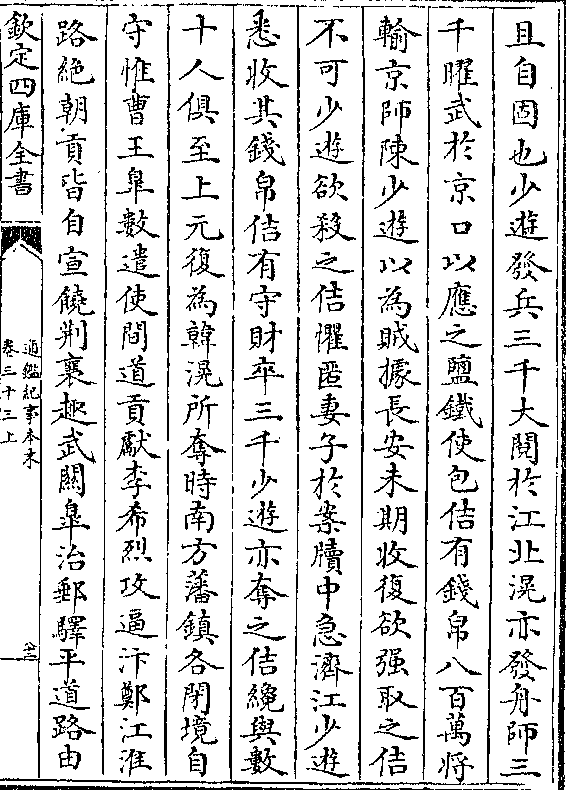 且自固也少遊發兵三千大閱於江北滉亦發舟師三
千曜武於京口以應之鹽鐵使包佶有錢帛八百萬将
輸京師陳少遊以為賊據長安未期收復欲强取之佶
不可少遊欲殺之佶懼匿妻子於案牘中急濟江少遊
悉收其錢帛佶有守財卒三千少遊亦奪之佶纔與數
十人俱至上元復為韓滉所奪時南方藩鎮各閉境自
守惟曹王臯數遣使間道貢獻李希烈攻逼汴鄭江淮
路絶朝貢皆自宣饒荆襄趣武關臯治郵驛平道路由
欽定四庫全書
通鑑紀事本末
卷三十三上